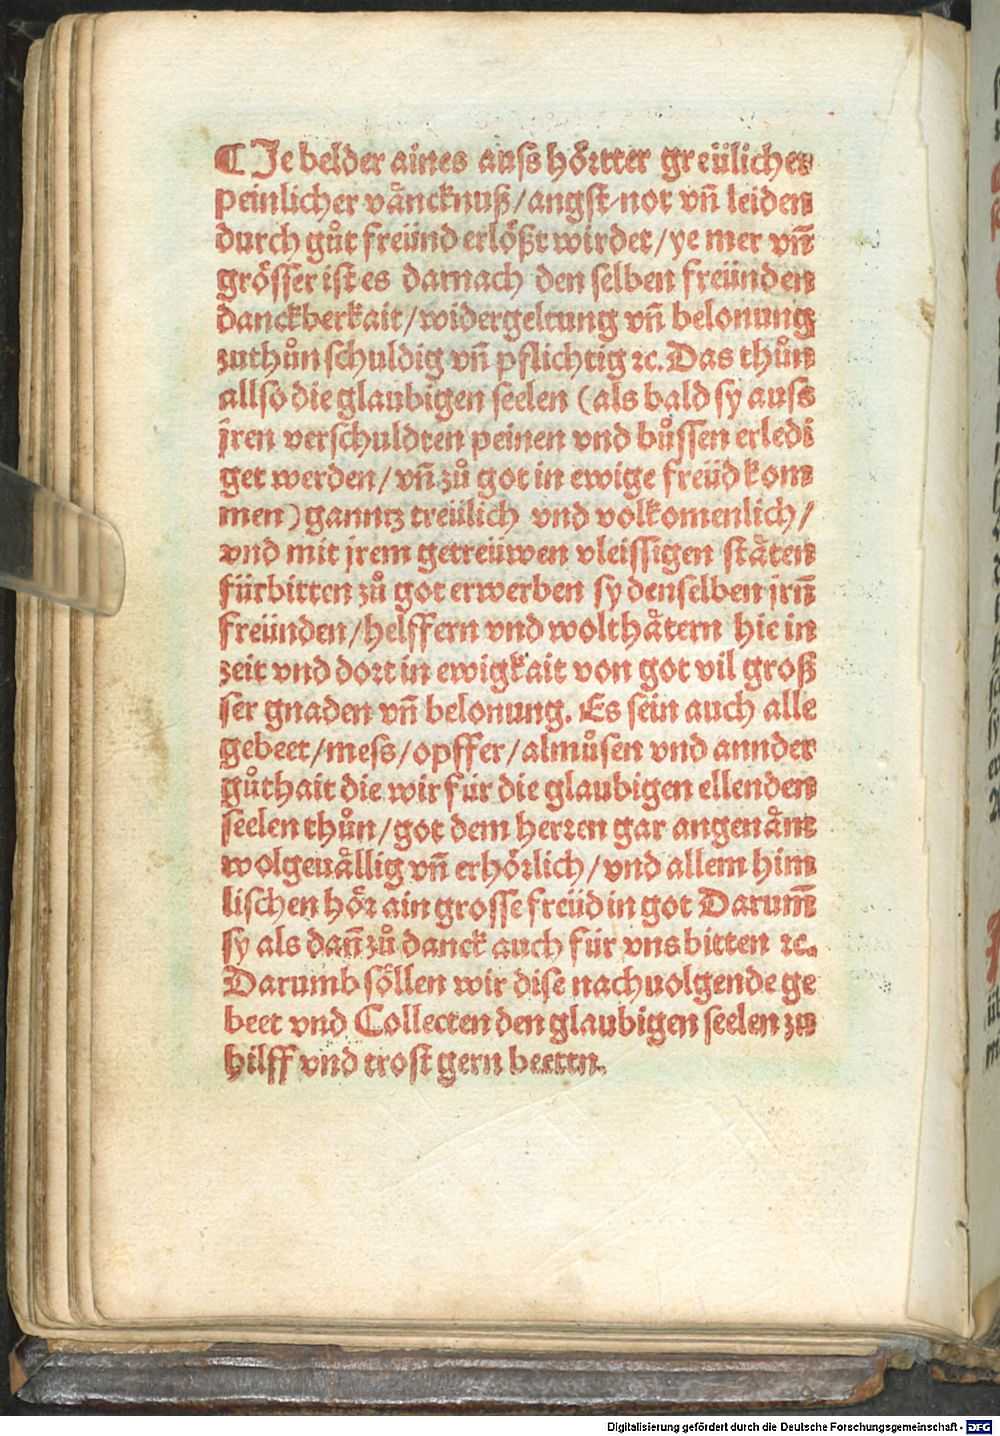 ¶ Je belder aines auss hörtter greülicher
peinlicher våncknuß/angst/not vn̄ leiden
durch gůt freünd erlößt wirdet/ye mer vn̄
grösser ist es darnach den selben freünden
danckberkait/widergeltung vn̄ belonung
zuthůn schuldig vn̄ pflichtig ꝛc. Das thůn
allso die glaubigen seelen (als bald sy auss
jren verschuldten peinen vnd bůssen erledi
get werden/vn̄ zů got in ewige freüd kom
men) ganntz treülich vnd volkomenlich/
vnd mit jrem getreüwen vleissigen ståten
fürbitten zů got erwerben sy denselben jrn̄
freünden/helffern vnd wolthåtern hie in
zeit vnd dort in ewigkait von got vil groß
ser gnaden vn̄ belonung. Es sein auch alle
gebeet/mess/opffer/almůsen vnd annder
gůthait die wir für die glaubigen ellenden
seelen thůn/got dem herren gar angenåm
wolgeuållig vn̄ erhörlich/vnd allem him
lischen hör ain grosse freüd in got Darum̄
sy als dan̄ zů danck auch für vns bitten ꝛc.
Darumb söllen wir dise nachuolgende ge
beet vnd Collecten den glaubigen seelen zu
hilff vnd trost gern beettn.
Digitalisierung gefördert durch die Deutsche Forschungsgemeinschaft - DFG